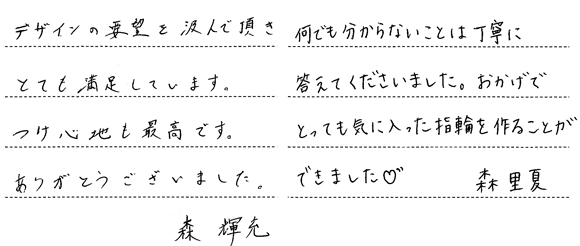 デザインの要望を汲んで頂き
とても満足しています。
つけ心地も最高です。
ありがとうございました。
森 輝充
何でも分からないことは丁寧に
答えてくださいました。おかげで
とっても気に入った指輪を作ることが
できました♡
森 里夏